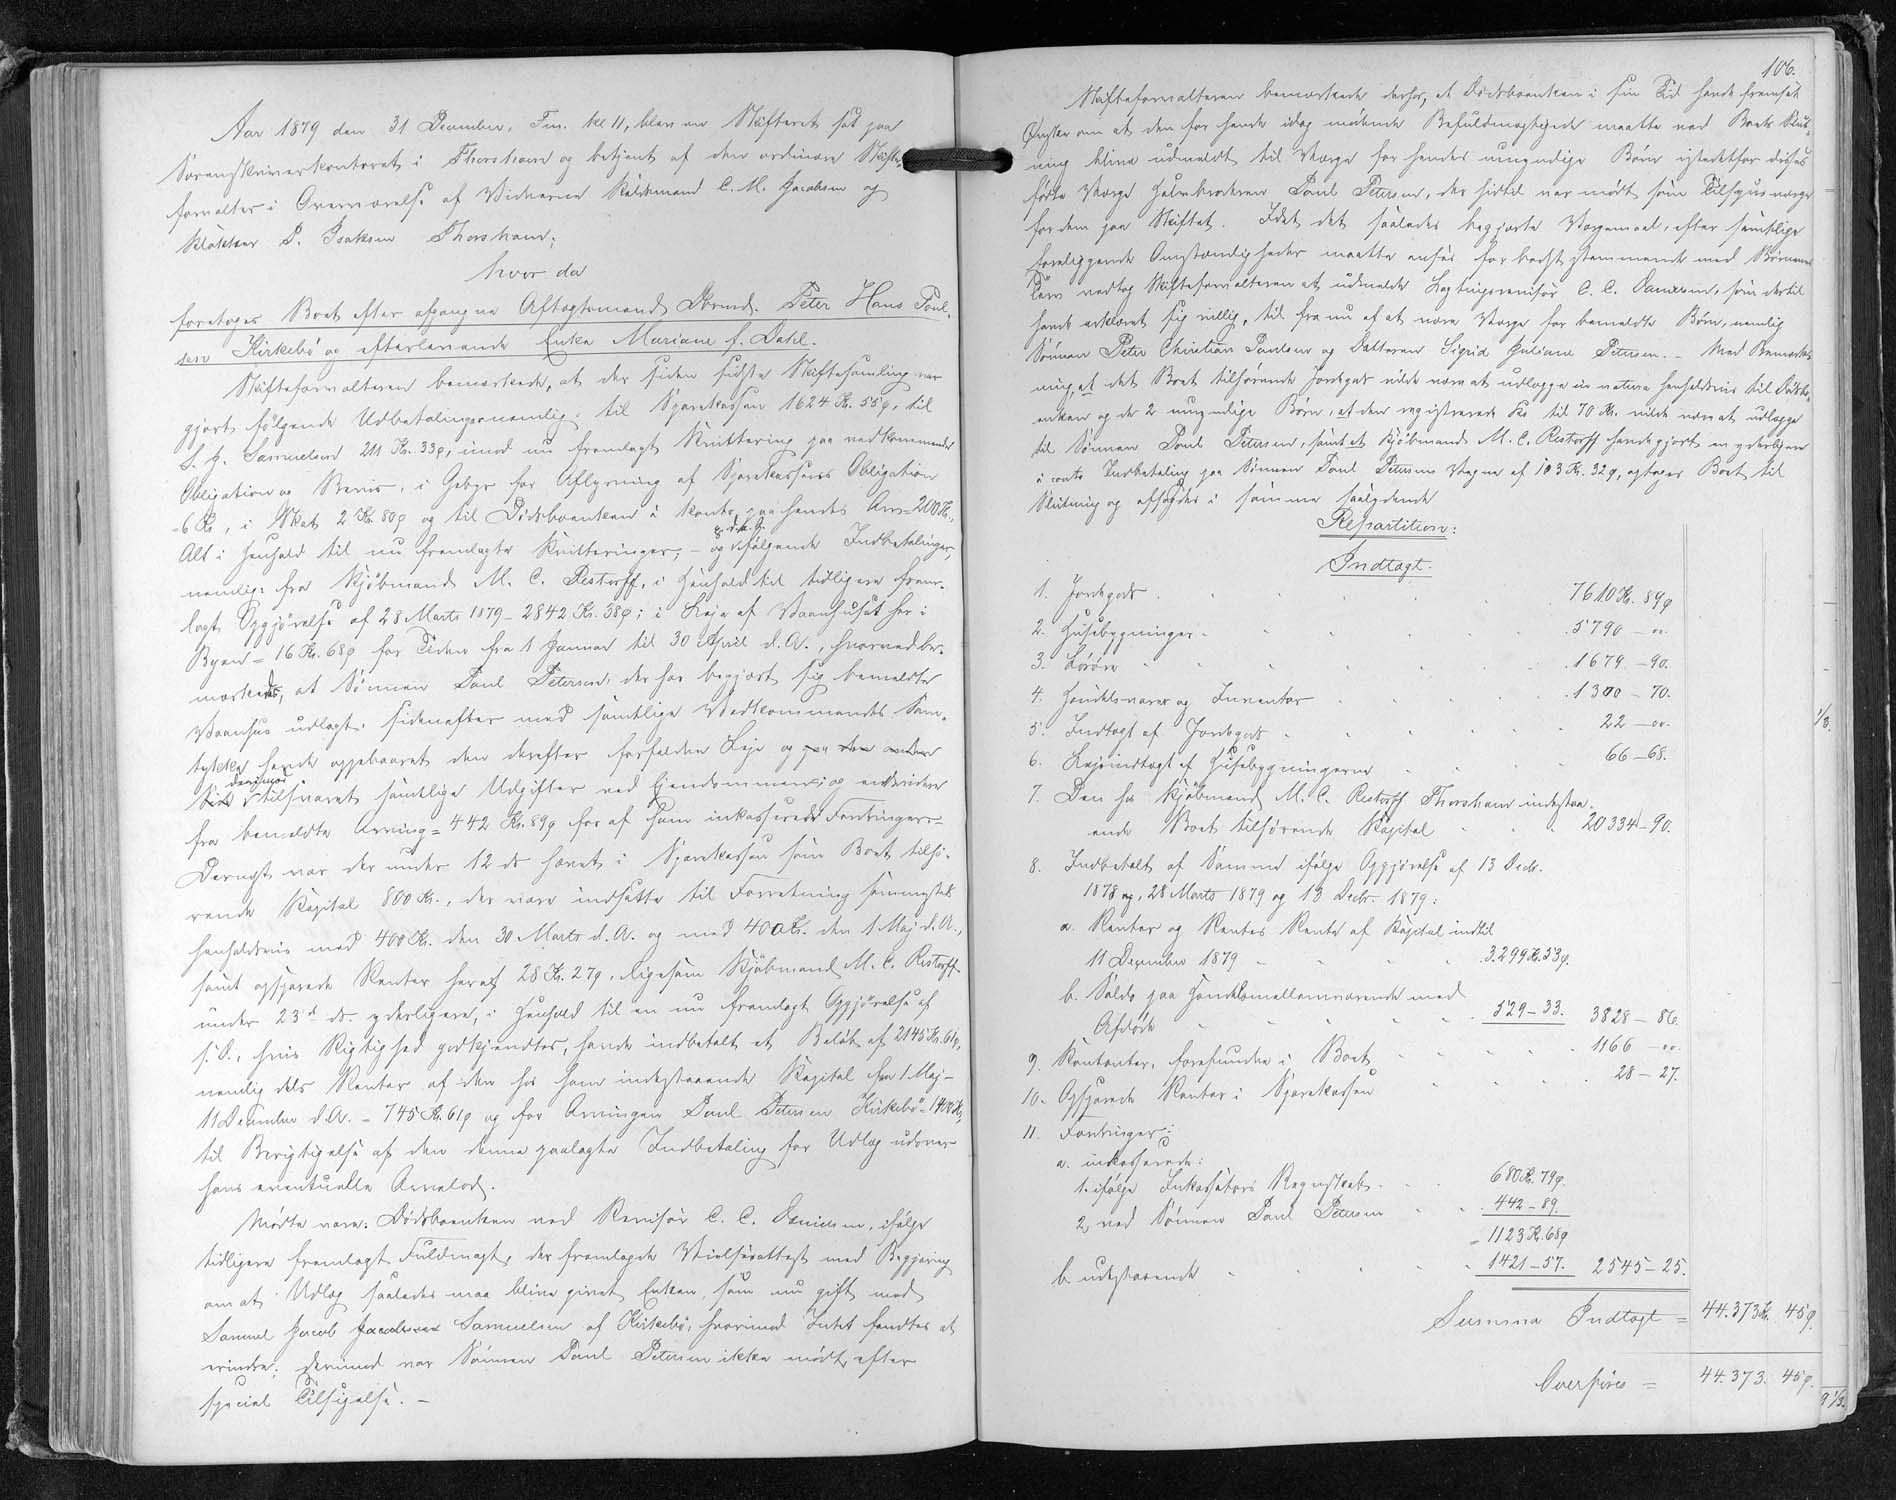 Aar 1879 den 31 December, Fm. kl 11, blev en Skifteret sat paa
Sorenskriverkontoret i Thorshavn og betjent af den ordinære Skifte-
forvalter i Overværelse af Vidnerne Rådsmand C. M. Jacobsen og
Klokker D. Isaksen Thorshavn;
hvor da
foretoges Boet efter afgangne Aftægtsmand Dbmd. Peter Hans Poul-
sen Kirkebö og efterlevende Enke Mariane f. Dahl.
Skifteforvalteren bemærkede, at der siden sidste Skiftesamling var
gjort følgende Udbetalinger nemlig: til Sparekassen 1624 Kr. 55ø, til
S. J. Samuelsen 211 Kr. 33ø, imod nu fremlagt Kvittering paa vedkommende
Obligation og Bevis, i Gebyr for Aflysning af Sparekassens Obligation
- 6 Kr, i Skat 2 Kr 80ø og til Dödsboenken à Konto paa hendes Arv = 200 Kr.,
Alt i Henhold til nu fremlagte Kvitteringer; - og følgende Indbetalinger,
nemlig: fra Kjöbmand M. C. Restorff, i Henhold til tidligere frem-
lagt Opgjörelse af 28 Marts 1879 - 2842 Kr. 38ø; i Leje af Vaanhuset her i
Byen = 16 Kr. 68ø for Tiden fra 1 Januar til 30 April d. A., hvorved be-
mærkedes, at Sönnen Poul Petersen, der har begjært sig bemeldte
Vaanhus udlagt, sidenefter med samtlige Vedkommendes Sam-
tykke havde oppebaaret den derefter forfaldne Leje og paa den anden
Side derimod tilsvaret samtlige Udgifter ved Ejendommen; og endvidere
fra bemeldte Arving = 442 Kr. 89ø for af ham inkasserede Fordringer. -
Dernæst var der under 12 ds hævet i Sparekassen som Boet tilhö-
rende Kapital 800 Kr., der vare indsatte til Forrentning sammesteds
henholdsvis med 400 Kr. den 30 Marts d. A. og med 400 Kr. den 1 Maj d. A.,
samt opsparede Renter heraf 28 Kr. 27ø, ligesom Kjöbmand M. C. Restorff
under 23de ds. yderligere, i Henhold til en nu fremlagt Opgjörelse af
s. D., hvis Rigtighed godkjendtes, havde indbetalt et Belöb af 2145 Kr. 61ø,
nemlig dels Renter af den hos ham indestaaende Kapital fra 1 Maj -
11 December d. A. - 745 Kr. 61ø og for Arvingen Poul Petersen Kirkebö = 1400 Kr,
til Berigtigelse af den denne paalagte Indbetaling for Udlæg udover
hans eventuelle Arvelod.
Mødte vare: Dödsboenken ved Revisor C. C. Danielsen, ifölge
tidligere fremlagt Fuldmagt, der fremlagde Vielsesattest med Begjæring
om at Udlæg saaledes maa blive givet Enken, som nu gift med
Samuel Jacob Jacobsen Samuelsen af Kirkebö, hvorimod Intet fandtes at
erindre; derimod var Sönnen Poul Petersen ikke mødt efter
special Tilsigelse. -
106.
Skifteforvalteren bemærkede derhos, at Dødsboenken i sin Tid havde fremsat
Ønsker om at den for hende idag mødende Befuldmægtigede maatte ved Boets Slut-
ning blive udmeldt til Værge for hendes umyndige Börn istedetfor disses
födte Værge Halvbroderen Poul Petersen, der hidtil var mødt som Tilsynsværge
for dem paa Skiftet. Idet det saaledes begjærte Værgemaal, efter samtlige
foreliggende Omstændigheder maatte anses for bedst stemmende med Börnenes
Tarv vedtog Skifteforvalteren at udmelde Lagtingsrevisor C. C. Danielsen, som dertil
havde erklæret sig villig, til fra nu af at være Værge for bemeldte Börn, nemlig
Sönnen Peter Christian Poulsen og Datteren Sigrid Juliane Petersen. - Med Bemærk-
ning, at det Boet tilhörende Jordegods vilde være at udlægge in natura henholdsvis til Dødsbo-
enken og de 2 umyndige Börn, at den registrerede Ko til 70 Kr. vilde være at udlægge
til Sönnen Poul Petersen, samt at Kjöbmand M. C. Restorff havde gjort en yderligere
à conto Indbetaling paa Sönnen Poul Petersens Vegne af 103 Kr. 32ø, optoges Boet til
Slutning og afsagdes i samme saalydende
Repartition:
Indtægt.
1. Jordegods 7610 Kr. 89ø
2. Husebygninger 5790 - 00.
3. Lösöre 1679 - 90.
4. Handelsvarer og Inventar 1300 - 70.
5. Indtægt af Jordegods 22 - 00.
6. Lejeindtægt af Husebygningerne 66 - 68.
7. Den hos Kjöbmand M. C. Restorff Thorshavn indestaa-
ende Boet tilhörende Kapital 20334 - 90.
8. Indbetalt af Samme ifölge Opgjörelse af 13 Decbr.
1878 og, 28 Marts 1879 og 13 Decbr. 1879:
a. Renter og Rentes Rente af Kapital indtil
11 December 1879 3.299 Kr. 53ø.
b. Saldo paa Handelsmellemværende med
Afdöde 529 - 33. 3828 - 86.
9. Kontanter, forefundne i Boet 1166 - 00.
10. Opsparede Renter i Sparekassen 28 - 27.
11. Fordringer:
a. inkasserede:
1. ifölge Inkassators Regnskab 680 Kr. 79ø.
2, ved Sönnen Poul Petersen 442 - 89.
= 1123 Kr. 68ø
b. udestaaende 1421 - 57. 2545 - 25.
Summa Indtægt = 44.373 Kr. 45ø.
Overføres = 44.373. 45ø.
1/3.
9 1/3.